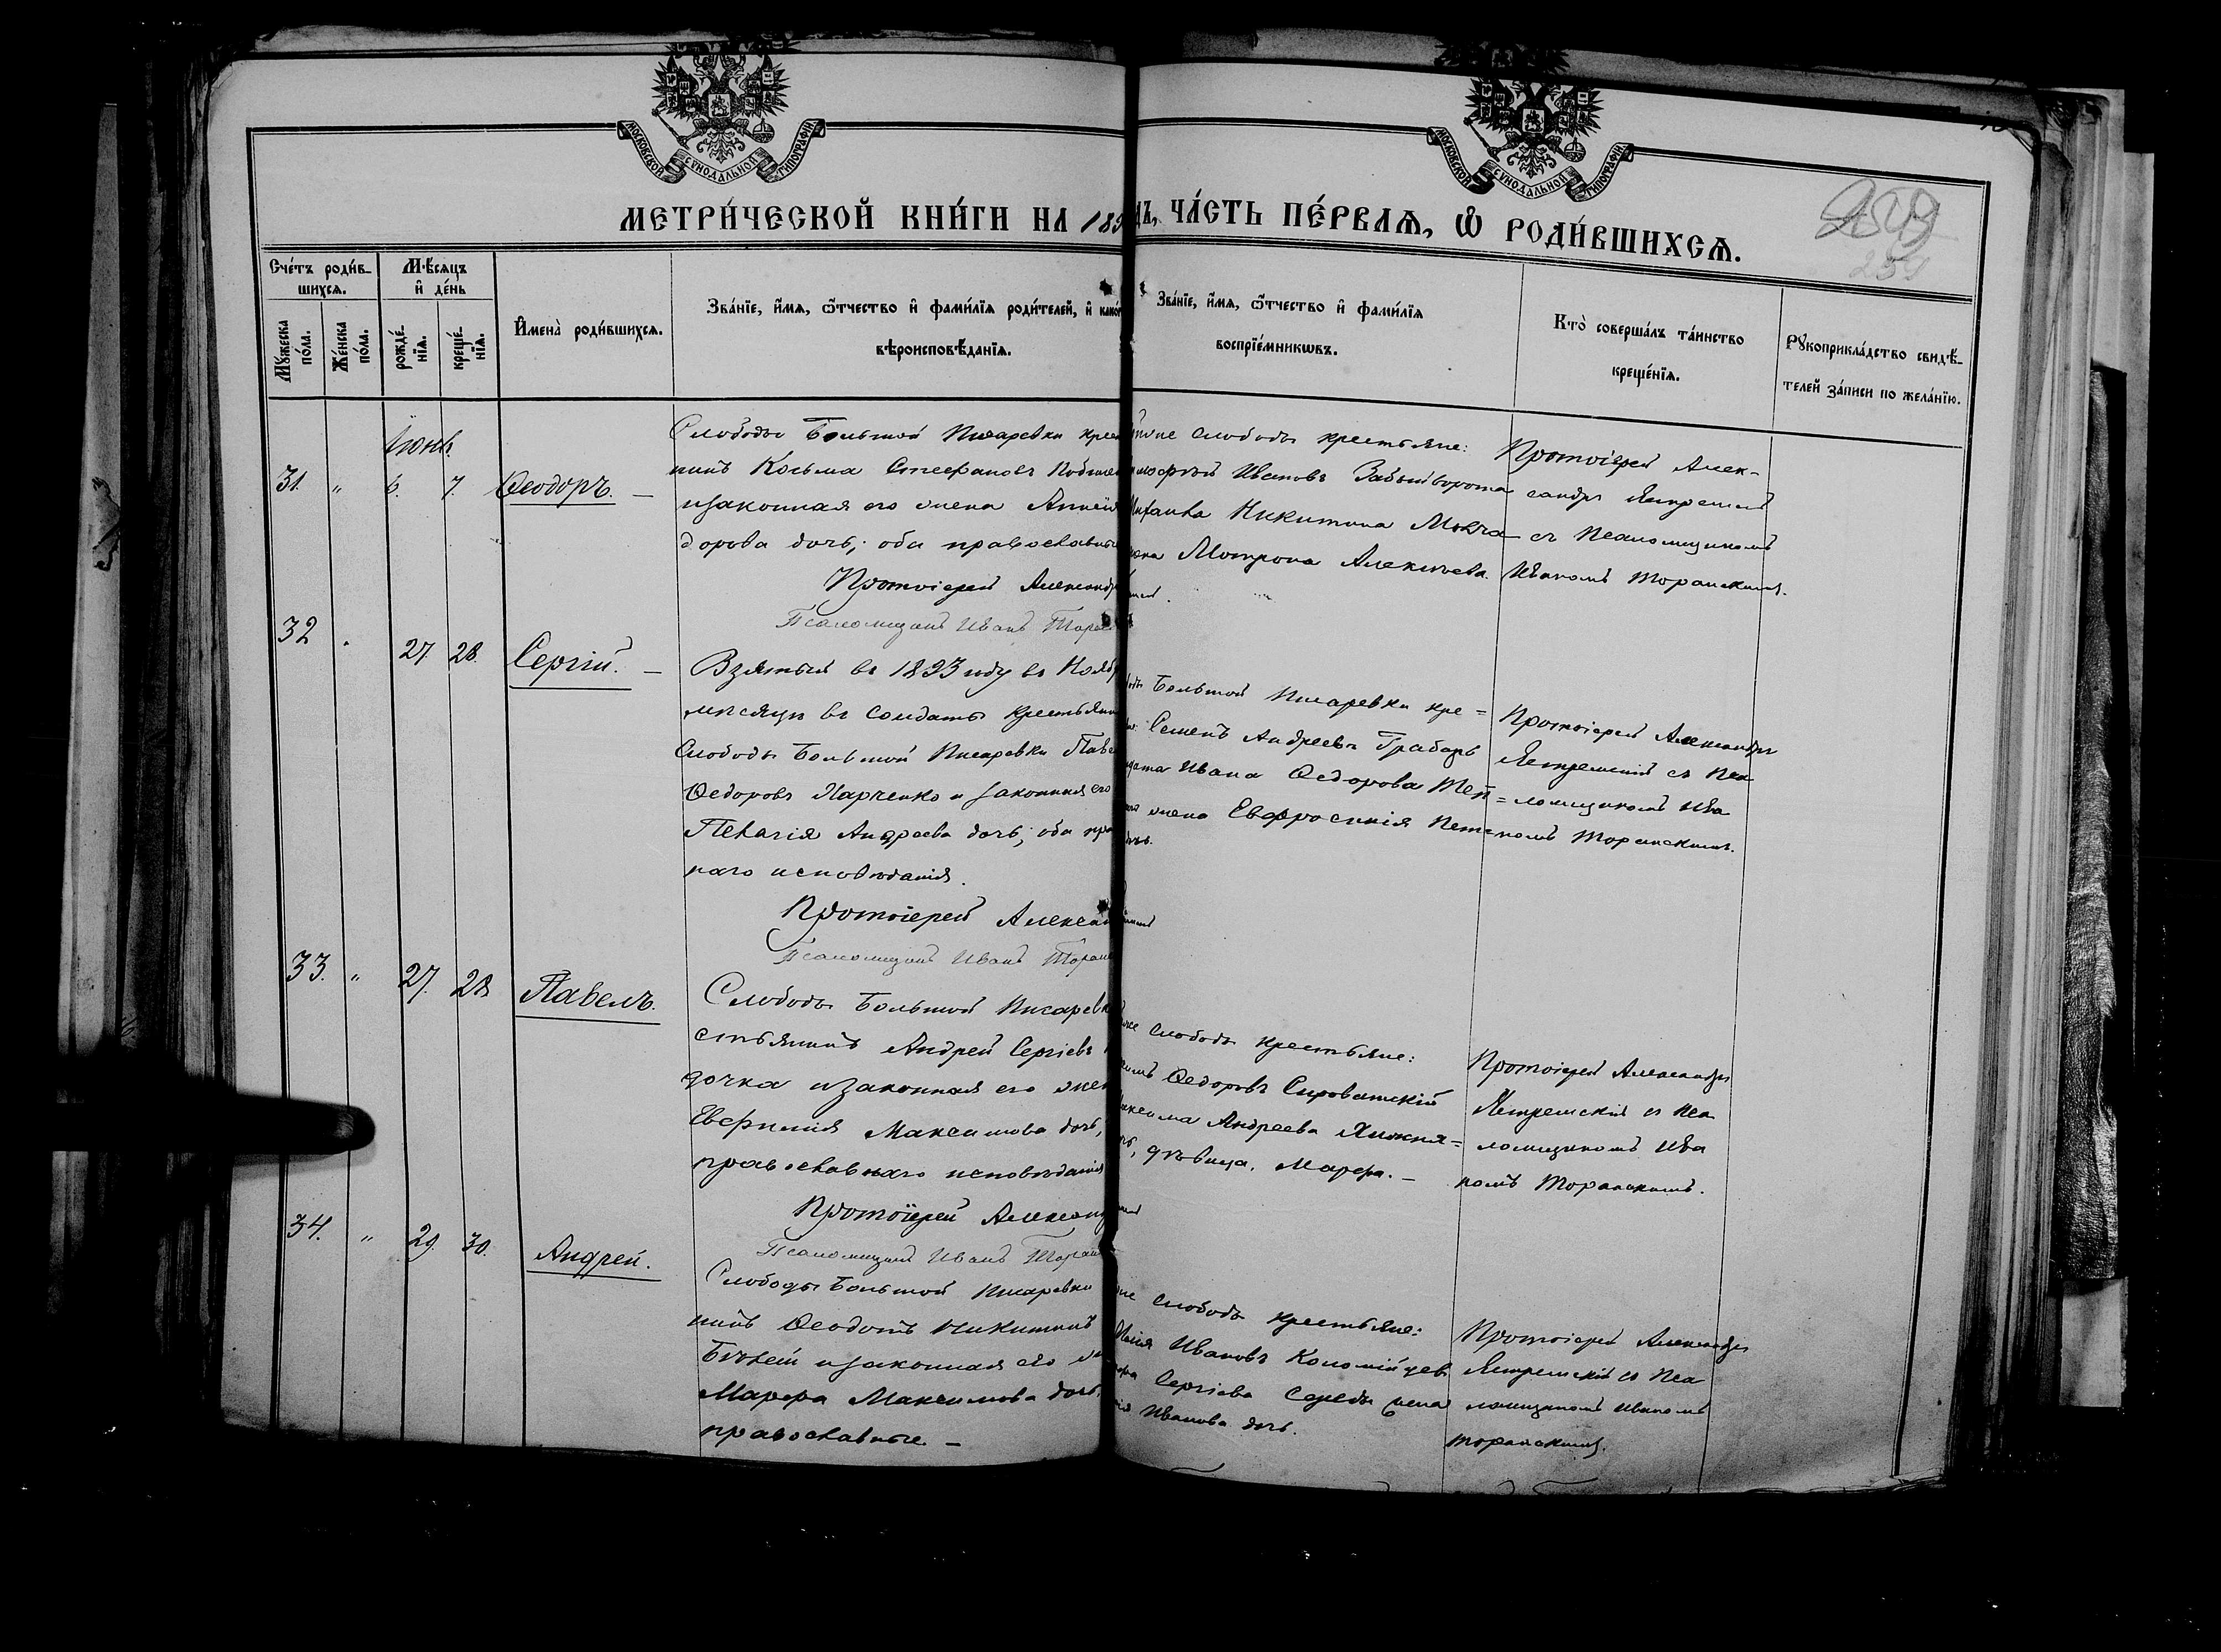 МОСКОВСКОЙ СѴНОДАЛЬНОЙ ТИПОГРАФІИ
МОСКОВСКОЙ СѴНОДАЛЬНОЙ ТИПОГРАФІИ
МЕТРИ́ЧЕСКОЙ КНИ́ГИ НА 189
ДЪ, ЧА́СТЬ ПЕ́РВАѦ, Ѡ҆ РОДИ́ВШИХСѦ.
Сче́тъ роди́в-
шихсѧ.
Мꙋ́жеска по́ла.
Же́нска по́ла.
Мѣ́сѧцъ
и҆ де́нь
рожде́-
нїѧ.
креще́-
нїѧ.
И҆мена̀ роди́вшихсѧ.
Зва́нїе, и҆́мѧ, ѻ҆́тчество и҆ фами́лїѧ роди́телей, и҆ како́
вѣроисповѣ́данїѧ.
Зва́нїе, и҆́мѧ, ѻ҆́тчество и҆ фами́лїѧ
воспрїе́мникѡвъ.
Кто̀ соверша́лъ та́инство
креще́нїѧ.
Рꙋкоприкла́дство свидѣ́-
телей за́писи по жела́нїю.
Іюнь
31. " 6. 7. Ѳеодоръ. —
Слободы Большой Писаревки крес
нинъ Косьма Стефановъ
и законная его жена
дорова дочь; оба православны
Протоіерей Александ
Псаломщикъ Иванъ Торан
тойже слободы крестьяне:
Ивановъ
Никитина
жена Мотрона Алексѣева.
Протоіерей Алек-
сандръ Ястремскій
съ Псаломщикомъ
Иваномъ Торанскимъ.
32 . 27 28. Сергій. —
Взятый въ 1893 году въ Нояб
мѣсяцѣ въ солдаты крестьянин
Слободы Большой Писаревки Паве
Ѳедоровъ Марченко и законная его
Пелагія Андреева дочь; оба пра
наго исповѣданія.
Протоіерей Алексан
Псаломщикъ Иванъ Торан
Большой Писаревки кре=
Семенъ Андреевъ Грабарь
Ивана Ѳедорова
жена Евфросинія
Протоіерей Александръ
Ястремскій съ Пса
ломщикомъ Ива
номъ Торанскимъ.
33. " 27. 28 Павелъ.
Слободы Большой Писаревк
стьянинъ Андрей Сергіевъ
дочка и законная его жен
Евфимія Максимова дочь,
православнаго исповѣданія
Протоіерей Алексан
Псаломщикъ Иванъ Торан
слободы крестьяне:
Ѳедоровъ Сыроватскій
Андреева
дѣвица, Марфа. —
Протоіерей Александръ
Ястремскій съ Пса
ломщикомъ Ива
номъ Торанскимъ.
34. " 29. 30. Андрей.
Слободы Большой Писаревки
нинъ Ѳеодотъ Никитинъ
и законная его
Марфа Максимова дочь,
православные —
слободы крестьяне:
Ивановъ Коломійцев
Сергіева Середы жена
Иванова дочь.
Протоіерей Александръ
Ястремскій съ Пса
ломщикомъ Иваномъ
Торанскимъ.